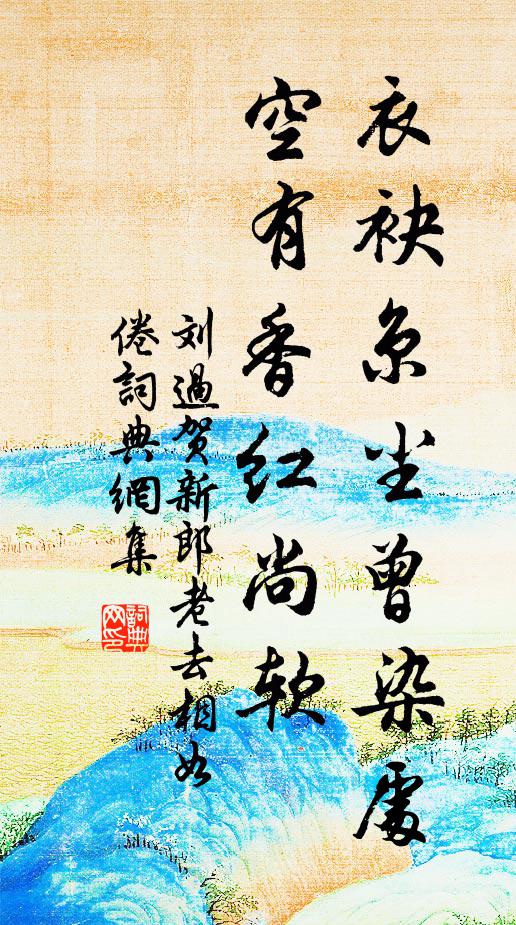 衣袂京尘曾染處
空有香红尚软
刘過贺新郎老去相如
倦詞典網集
詞典
网印